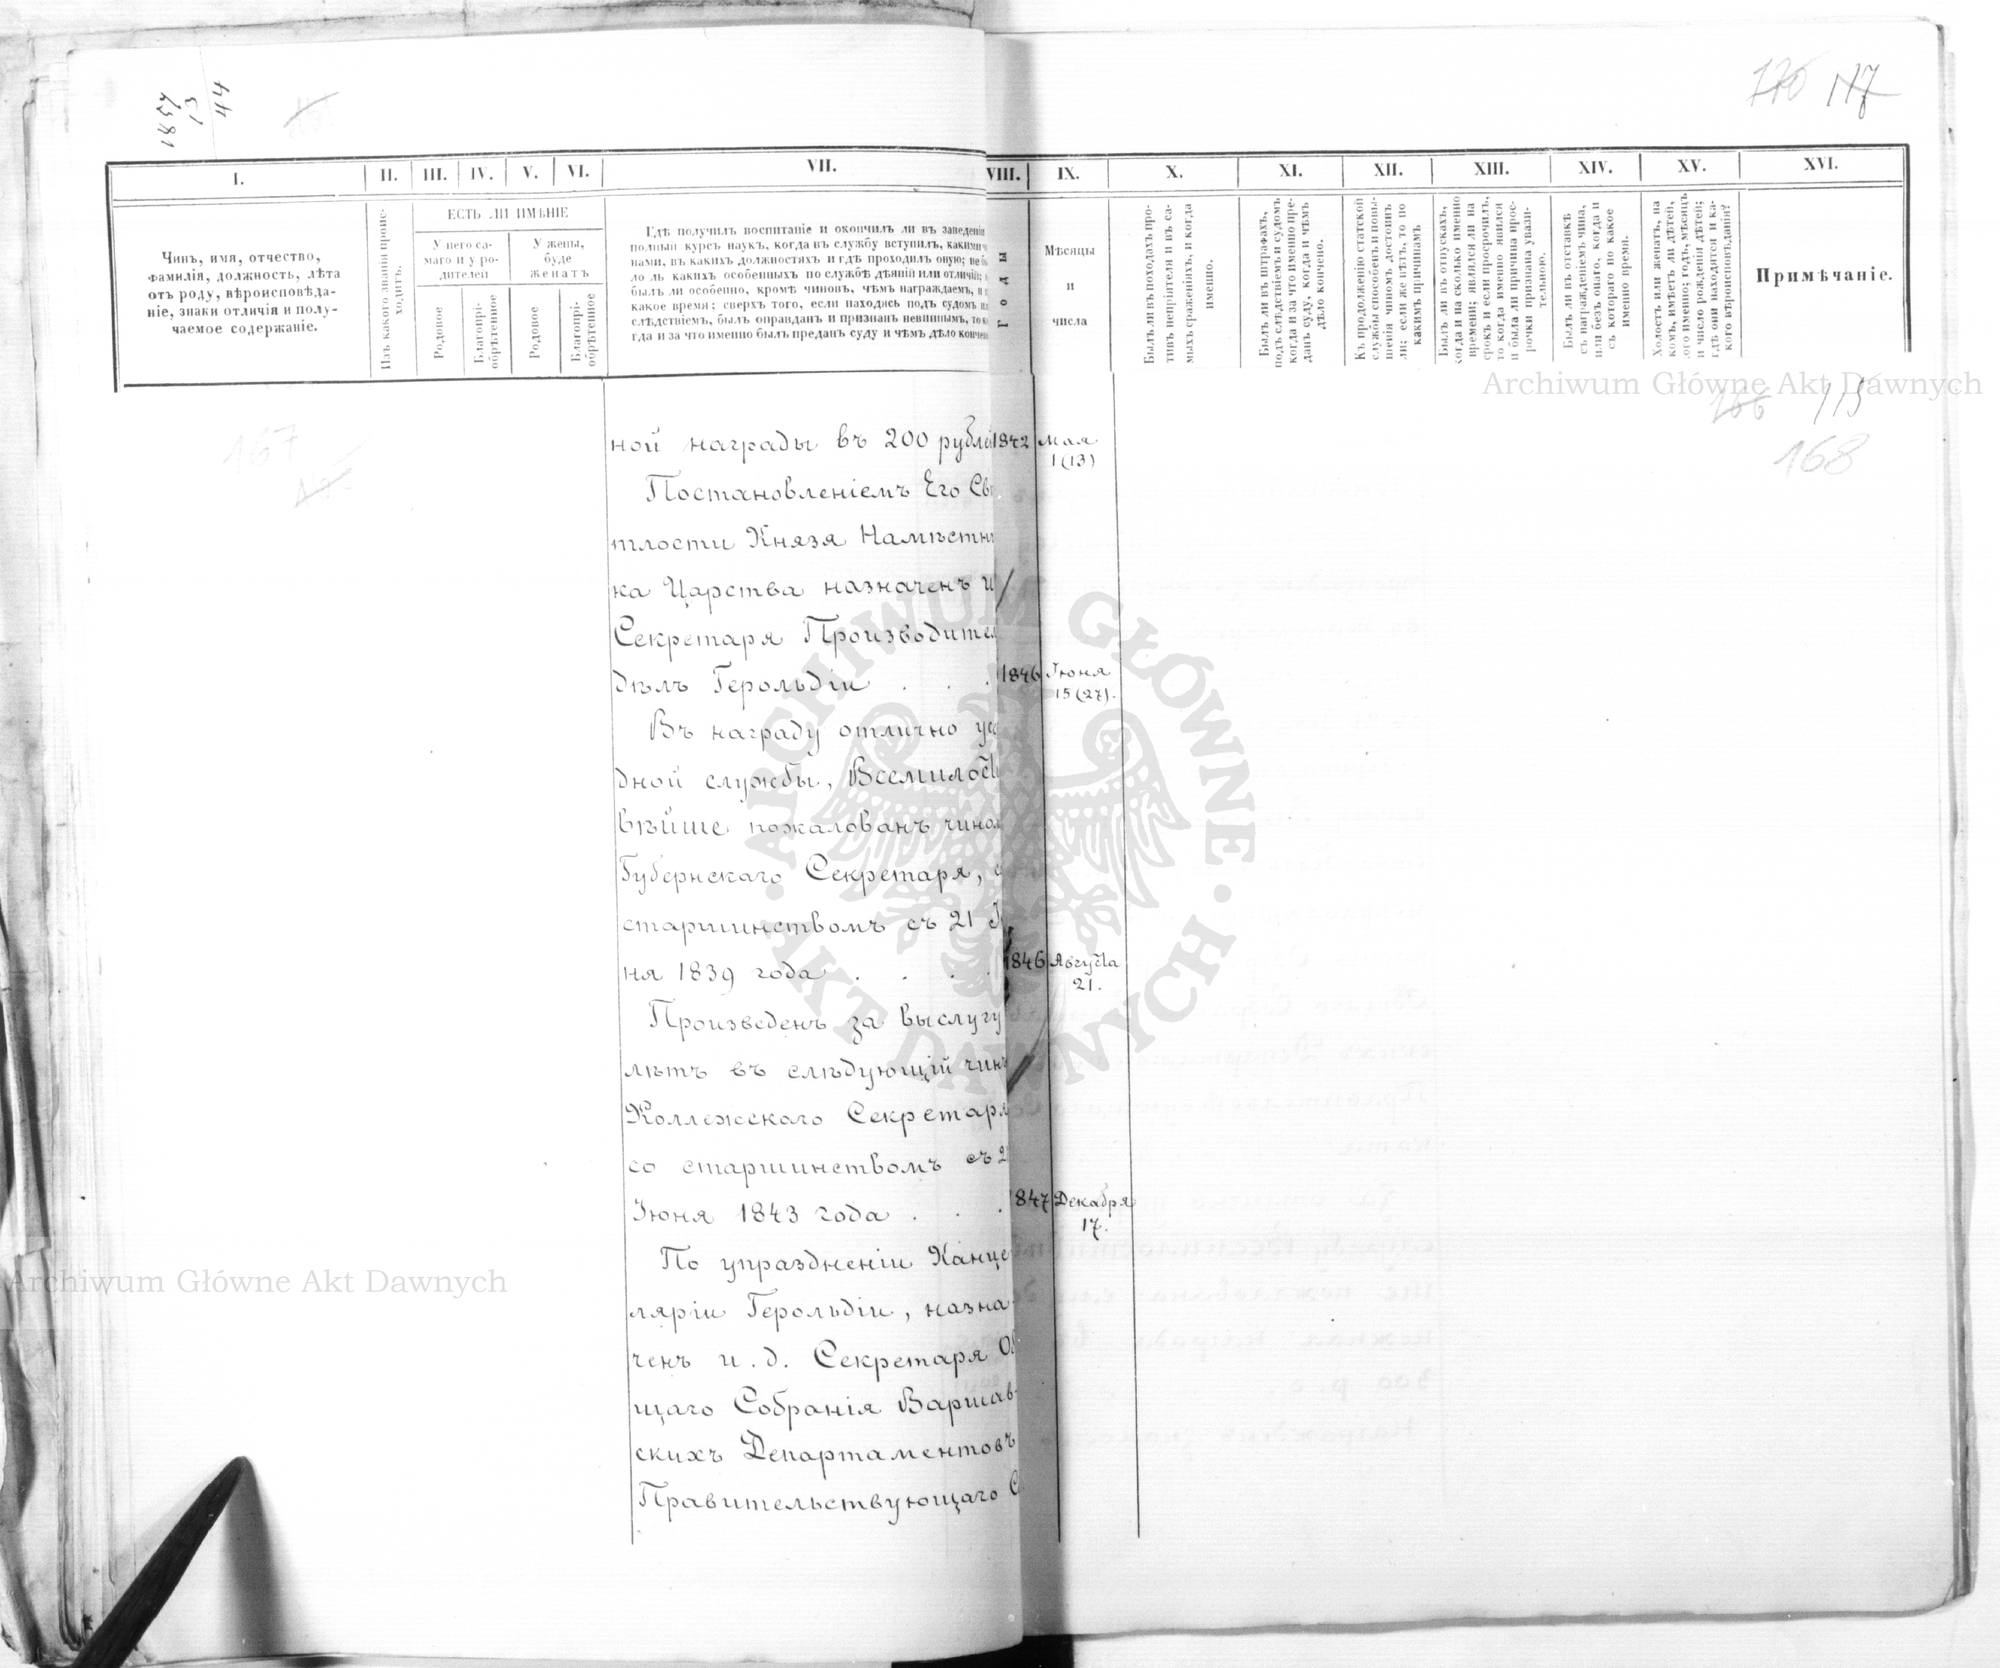 1857
13
44
170 117
I. II. III. IV. V. VI. VII. VIII. IX. X. XI. XII. XIII. XIV. XV. XVI.
Чинъ, имя, отчество,
фамилія, должность, лѣта
отъ роду, вѣроисповѣда-
ніе, знаки отличія и полу-
чаемое содержаніе.
Изъ какого званія проис-
ходитъ.
ЕСТЬ ЛИ ИМѢНІЕ
У него са-
маго и у ро-
дителей
У жены,
буде
женатъ
Родовое
Благопрі-
обрѣтенное
Родовое
Благопрі-
обрѣтенное
Гдѣ получилъ воспитаніе и окончилъ ли въ заведеніи
полный курсъ наукъ, когда въ службу вступилъ, какими
нами, въ какихъ должностяхъ и гдѣ проходилъ оную; не
ло ль какихъ особенныхъ по службѣ дѣяній или отличій;
былъ ли особенно, кромѣ чиновъ, чѣмъ награждаемъ, и
какое время; сверхъ того, если находясь подъ судомъ
слѣдствіемъ, былъ оправданъ и признанъ невиннымъ, то
гда и за что именно былъ преданъ суду и чѣмъ дѣло кончено
Годы
Мѣсяцы
и
числа
Былъ ли въ походахъ про-
тивъ непріятеля и въ са-
мыхъ сраженіяхъ, и когда
именно.
Былъ ли въ штрафахъ,
подъ слѣдствіемъ и судомъ
когда и за что именно пре-
данъ суду, когда и чѣмъ
дѣло кончено.
Къ продолженію статской
службы способенъ и повы-
шенія чиномъ достоинъ
ли; если же нѣтъ, то по
какимъ причинамъ
Былъ ли въ отпускахъ,
когда и на сколько именно
времени; являлся ли на
срокъ и если просрочилъ,
то когда именно явился
и была ли причина прос-
рочки признана уважи-
тельною.
Былъ ли въ отставкѣ
съ награжденіемъ чина,
или безъ онаго, когда и
съ котораго по какое
именно время.
Холостъ или женатъ, на
комъ, имѣетъ ли дѣтей,
кого именно; годъ, мѣсяцъ
и число рожденія дѣтей;
гдѣ они находятся и ка-
кого вѣроисповѣданія?
Примѣчаніе.
Archiwum Główne Akt Dawnych
166 115
168
167
ной награды въ 200 рублей 1842 Мая
1(13)
Постановленіемъ Его Свѣ
тлости Князя Намѣстни
ка Царства назначенъ и
Секретаря Производител
дѣлъ Герольдіи . . . 1846 Іюня
15(27).
Въ награду отлично усе
дной службы, Всемилости
вѣйше пожалованъ чином
Губернскаго Секретаря, с
старшинствомъ съ 21 Ію
ня 1839 года . . . . 1846 Августа
21.
Произведенъ за выслугу
лѣтъ въ слѣдующій чинъ
Коллежскаго Секретаря
со старшинствомъ съ 2
Іюня 1843 года . . . 1847 Декабря
17.
По упраздненіи Канце
ляріи Герольдіи, назна-
ченъ и.д. Секретаря Об
щаго Собранія Варшав-
скихъ Департаментовъ
Правительствующаго С
ARCHIWUM GŁÓWNE · AKT DAWNYCH ·
Archiwum Główne Akt Dawnych